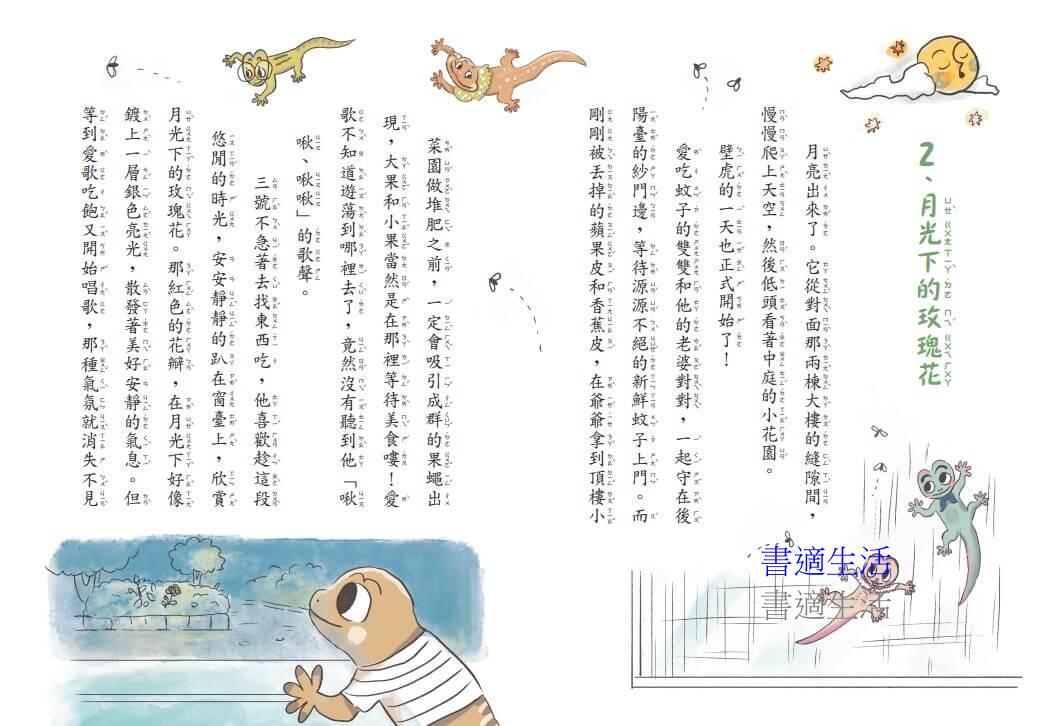 2、月光下的玫瑰花
月亮出來了。它從對面那兩棟大樓的縫隙間，
慢慢爬上天空，然後低頭看著中庭的小花園。
壁虎的一天也正式開始了！
愛吃蚊子的雙雙和他的老婆對對，一起守在後
陽臺的紗門邊，等待源源不絕的新鮮蚊子上門。而
剛剛被丟掉的蘋果皮和香蕉皮，在爺爺拿到頂樓小
菜園做堆肥之前，一定會吸引成群的果蠅出
現，大果和小果當然是在那裡等待美食嘍！愛
歌不知道遊蕩到哪裡去了，竟然沒有聽到他「啾
啾、啾啾」的歌聲。
三號不急著去找東西吃，他喜歡趁這段
悠閒的時光，安安靜靜的趴在窗臺上，欣賞
月光下的玫瑰花。那紅色的花瓣，在月光下好像
鍍上一層銀色亮光，散發著美好安靜的氣息。但
等到愛歌吃飽又開始唱歌，那種氣氛就消失不見
書適生活
書適生活